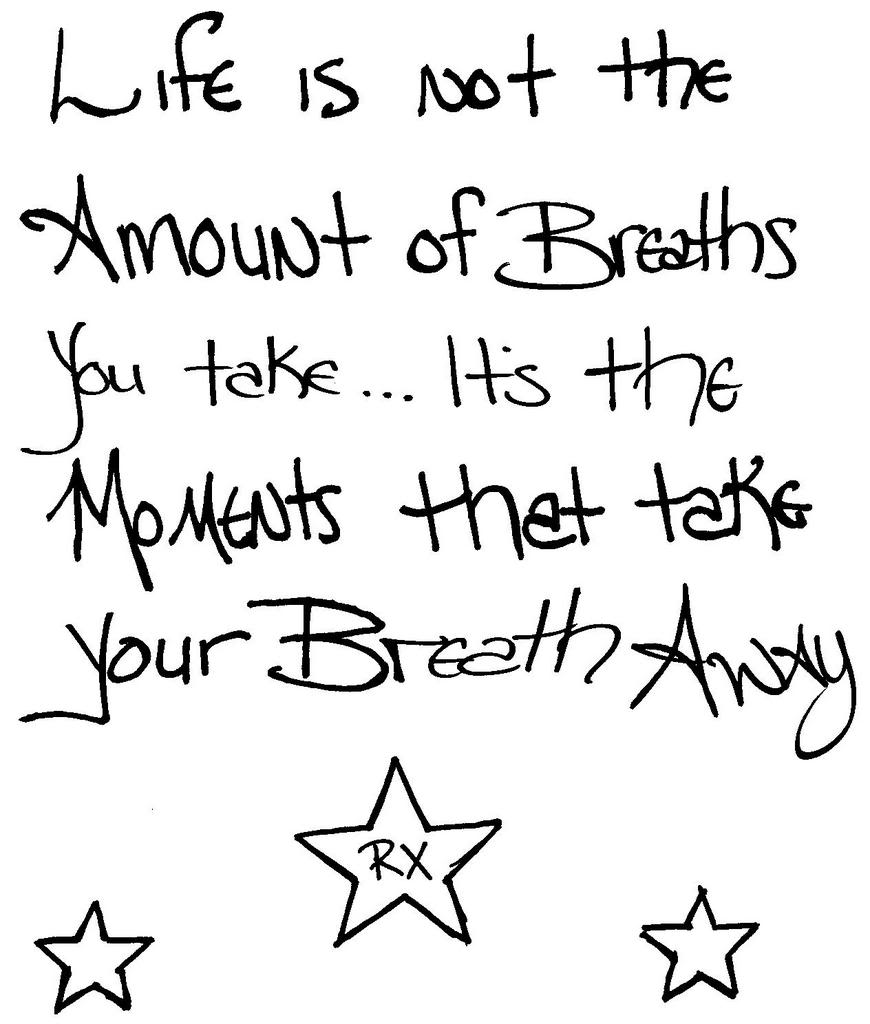 Life is not the
Amount of Breaths
you take... It's the
Moments that take
your Breath Away
RX